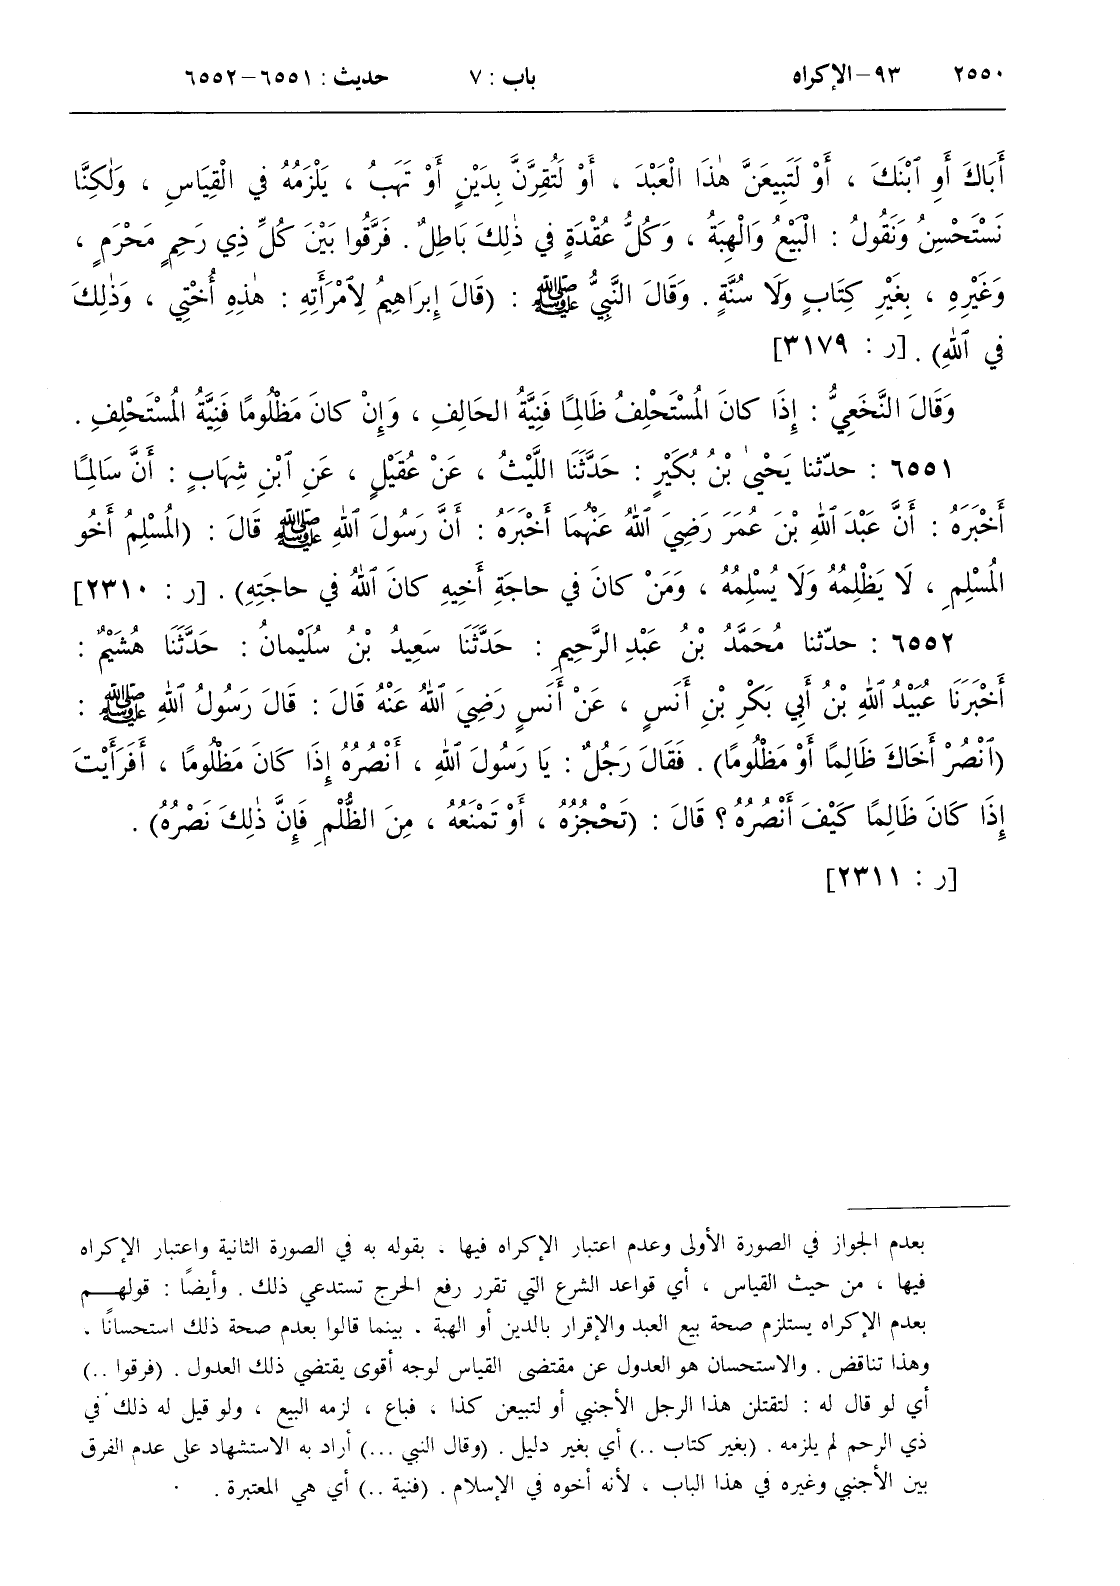 ٢٥٥٠ ٩٣-الإكراه باب : ٧ حديث : ٦٥٥١-٦٥٥٢
أَبَاكَ أَوِ ٱبْنَكَ ، أَوْ لَتَبِيعَنَّ هٰذَا الْعَبْدَ ، أَوْ لَتُقِرَّنَّ بِدَيْنٍ أَوْ تَهَبُ ، يَلْزَمُهُ فِي الْقِيَاسِ ، وَلٰكِنَّا
نَسْتَحْسِنُ وَنَقُولُ : الْبَيْعُ وَالْهِبَةُ ، وَكُلُّ عُقْدَةٍ فِي ذٰلِكَ بَاطِلٌ . فَرَّقُوا بَيْنَ كُلِّ ذِي رَحِمٍ مَحْرَمٍ ،
وَغَيْرِهِ ، بِغَيْرِ كِتَابٍ وَلَا سُنَّةٍ . وَقَالَ النَّبِيُّ ﷺ : (قَالَ إِبْرَاهِيمُ لِٱمْرَأَتِهِ : هٰذِهِ أُخْتِي ، وَذٰلِكَ
فِي ٱللهِ) . [ر : ٣١٧٩]
وَقَالَ النَّخَعِيُّ : إِذَا كانَ المُسْتَحْلِفُ ظَالِمًا فَنِيَّةُ الحَالِفِ ، وَإِنْ كانَ مَظْلُومًا فَنِيَّةُ المُسْتَحْلِفِ .
٦٥٥١ : حدّثنا يَحْيىٰ بْنُ بُكَيْرٍ : حَدَّثَنَا اللَّيْثُ ، عَنْ عُقَيْلٍ ، عَنِ ٱبْنِ شِهَابٍ : أَنَّ سَالِمًا
أَخْبَرَهُ : أَنَّ عَبْدَ ٱللهِ بْنَ عُمَرَ رَضِيَ ٱللهُ عَنْهُمَا أَخْبَرَهُ : أَنَّ رَسُولَ ٱللهِ ﷺ قَالَ : (المُسْلِمُ أَخُو
المُسْلِمِ ، لَا يَظْلِمُهُ وَلَا يُسْلِمُهُ ، وَمَنْ كانَ في حاجَةِ أَخِيهِ كانَ ٱللهُ في حاجَتِهِ) . [ر : ٢٣١٠]
٦٥٥٢ : حدّثنا مُحَمَّدُ بْنُ عَبْدِ الرَّحِيمِ : حَدَّثَنَا سَعِيدُ بْنُ سُلَيْمانَ : حَدَّثَنَا هُشَيْمٌ :
أَخْبَرَنَا عُبَيْدُ ٱللهِ بْنُ أَبِي بَكْرِ بْنِ أَنَسٍ ، عَنْ أَنَسٍ رَضِيَ ٱللهُ عَنْهُ قَالَ : قَالَ رَسُولُ ٱللهِ ﷺ :
(ٱنْصُرْ أَخَاكَ ظَالِمًا أَوْ مَظْلُومًا) . فَقَالَ رَجُلٌ : يَا رَسُولَ ٱللهِ ، أَنْصُرُهُ إِذَا كانَ مَظْلُومًا ، أَفَرَأَيْتَ
إِذَا كَانَ ظَالِمًا كَيْفَ أَنْصُرُهُ ؟ قَالَ : (تَحْجُزُهُ ، أَوْ تَمْنَعُهُ ، مِنَ الظُّلْمِ فَإِنَّ ذٰلِكَ نَصْرُهُ) .
[ر : ٢٣١١]
بعدم الجواز في الصورة الأولى وعدم اعتبار الإكراه فيها ، بقوله به في الصورة الثانية واعتبار الإكراه
فيها ، من حيث القياس ، أي قواعد الشرع التي تقرر رفع الحرج تستدعي ذلك . وأيضًا : قولهم
بعدم الإكراه يستلزم صحة بيع العبد والإقرار بالدين أو الهبة ، بينما قالوا بعدم صحة ذلك استحسانًا ،
وهذا تناقض . والاستحسان هو العدول عن مقتضى القياس لوجه أقوى يقتضي ذلك العدول . (فرقوا ..)
أي لو قال له : لتقتلن هذا الرجل الأجنبي أو لتبيعن كذا ، فباع ، لزمه البيع ، ولو قيل له ذلك في
ذي الرحم لم يلزمه . (بغير كتاب ..) أي بغير دليل . (وقال النبي ...) أراد به الاستشهاد على عدم الفرق
بين الأجنبي وغيره في هذا الباب ، لأنه أخوه في الإسلام . (فنية ..) أي هي المعتبرة .